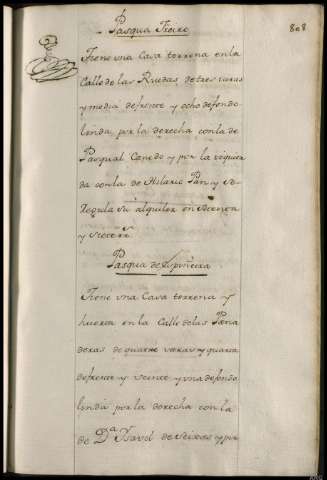 Pasqua Freire
808
Tiene una Casa terrena en la
Calle de las Ruedas de tres varas
y media de frente y ocho de fondo
linda por la derecha con la de
Pasqual Canedo y por la izquier
da con la de Hilario Pan, y se
Regula su alquiler en
y
Pasqua de
Tiene una Casa terrena y
huerta en la Calle de las Pana
deras de quatro varas y quarta
de frente y veinte y una de fondo
linda por la derecha con la
de D.ª Ysavel de Seixas y por